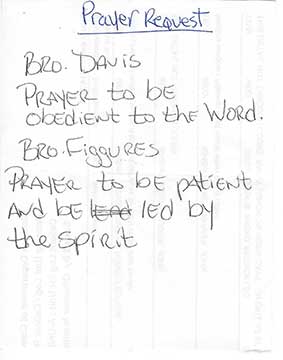 Prayer Request
BRO. DAVIS
PRAYER to be
obedient to the WORD.
BRO. FIGGURES
PRAYER to be patient
AND be lead led by
the SPIRIT